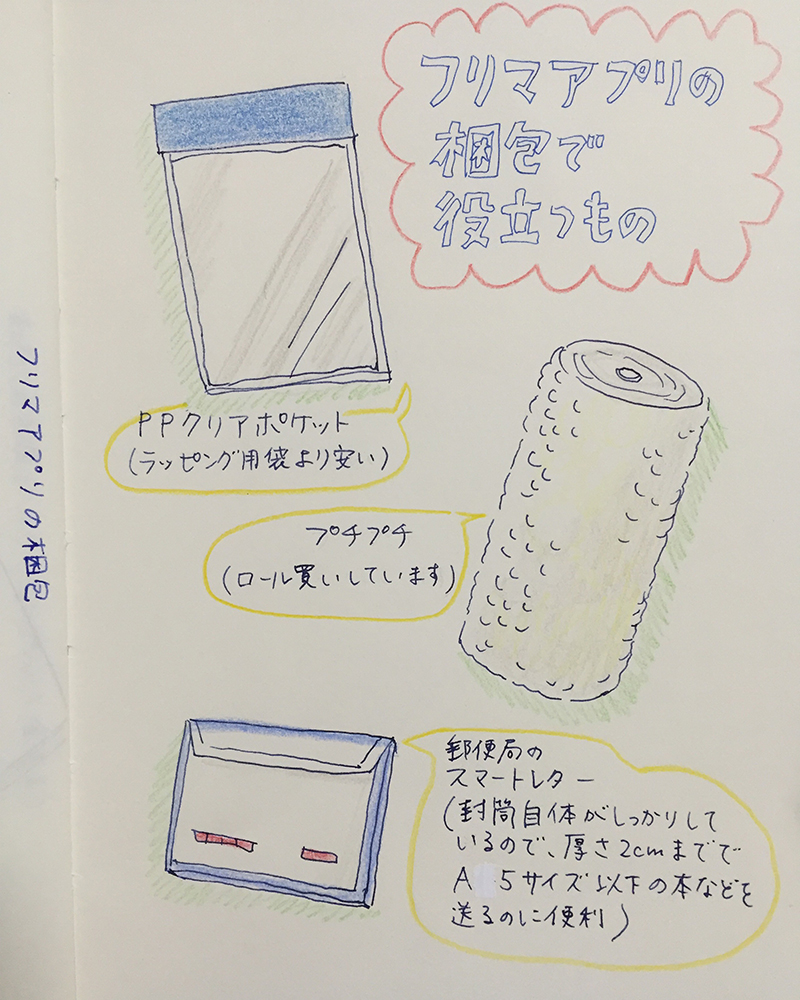 フリマアプリの
梱包で
役立つもの
PPクリアポケット
(ラッピング用袋より安い)
プチプチ
(ロール買いしています)
郵便局の
スマートレター
(封筒自体がしっかりして
いるので、厚さ2cmまでで
A5サイズ以下の本などを
送るのに便利)
フリマアプリの梱包